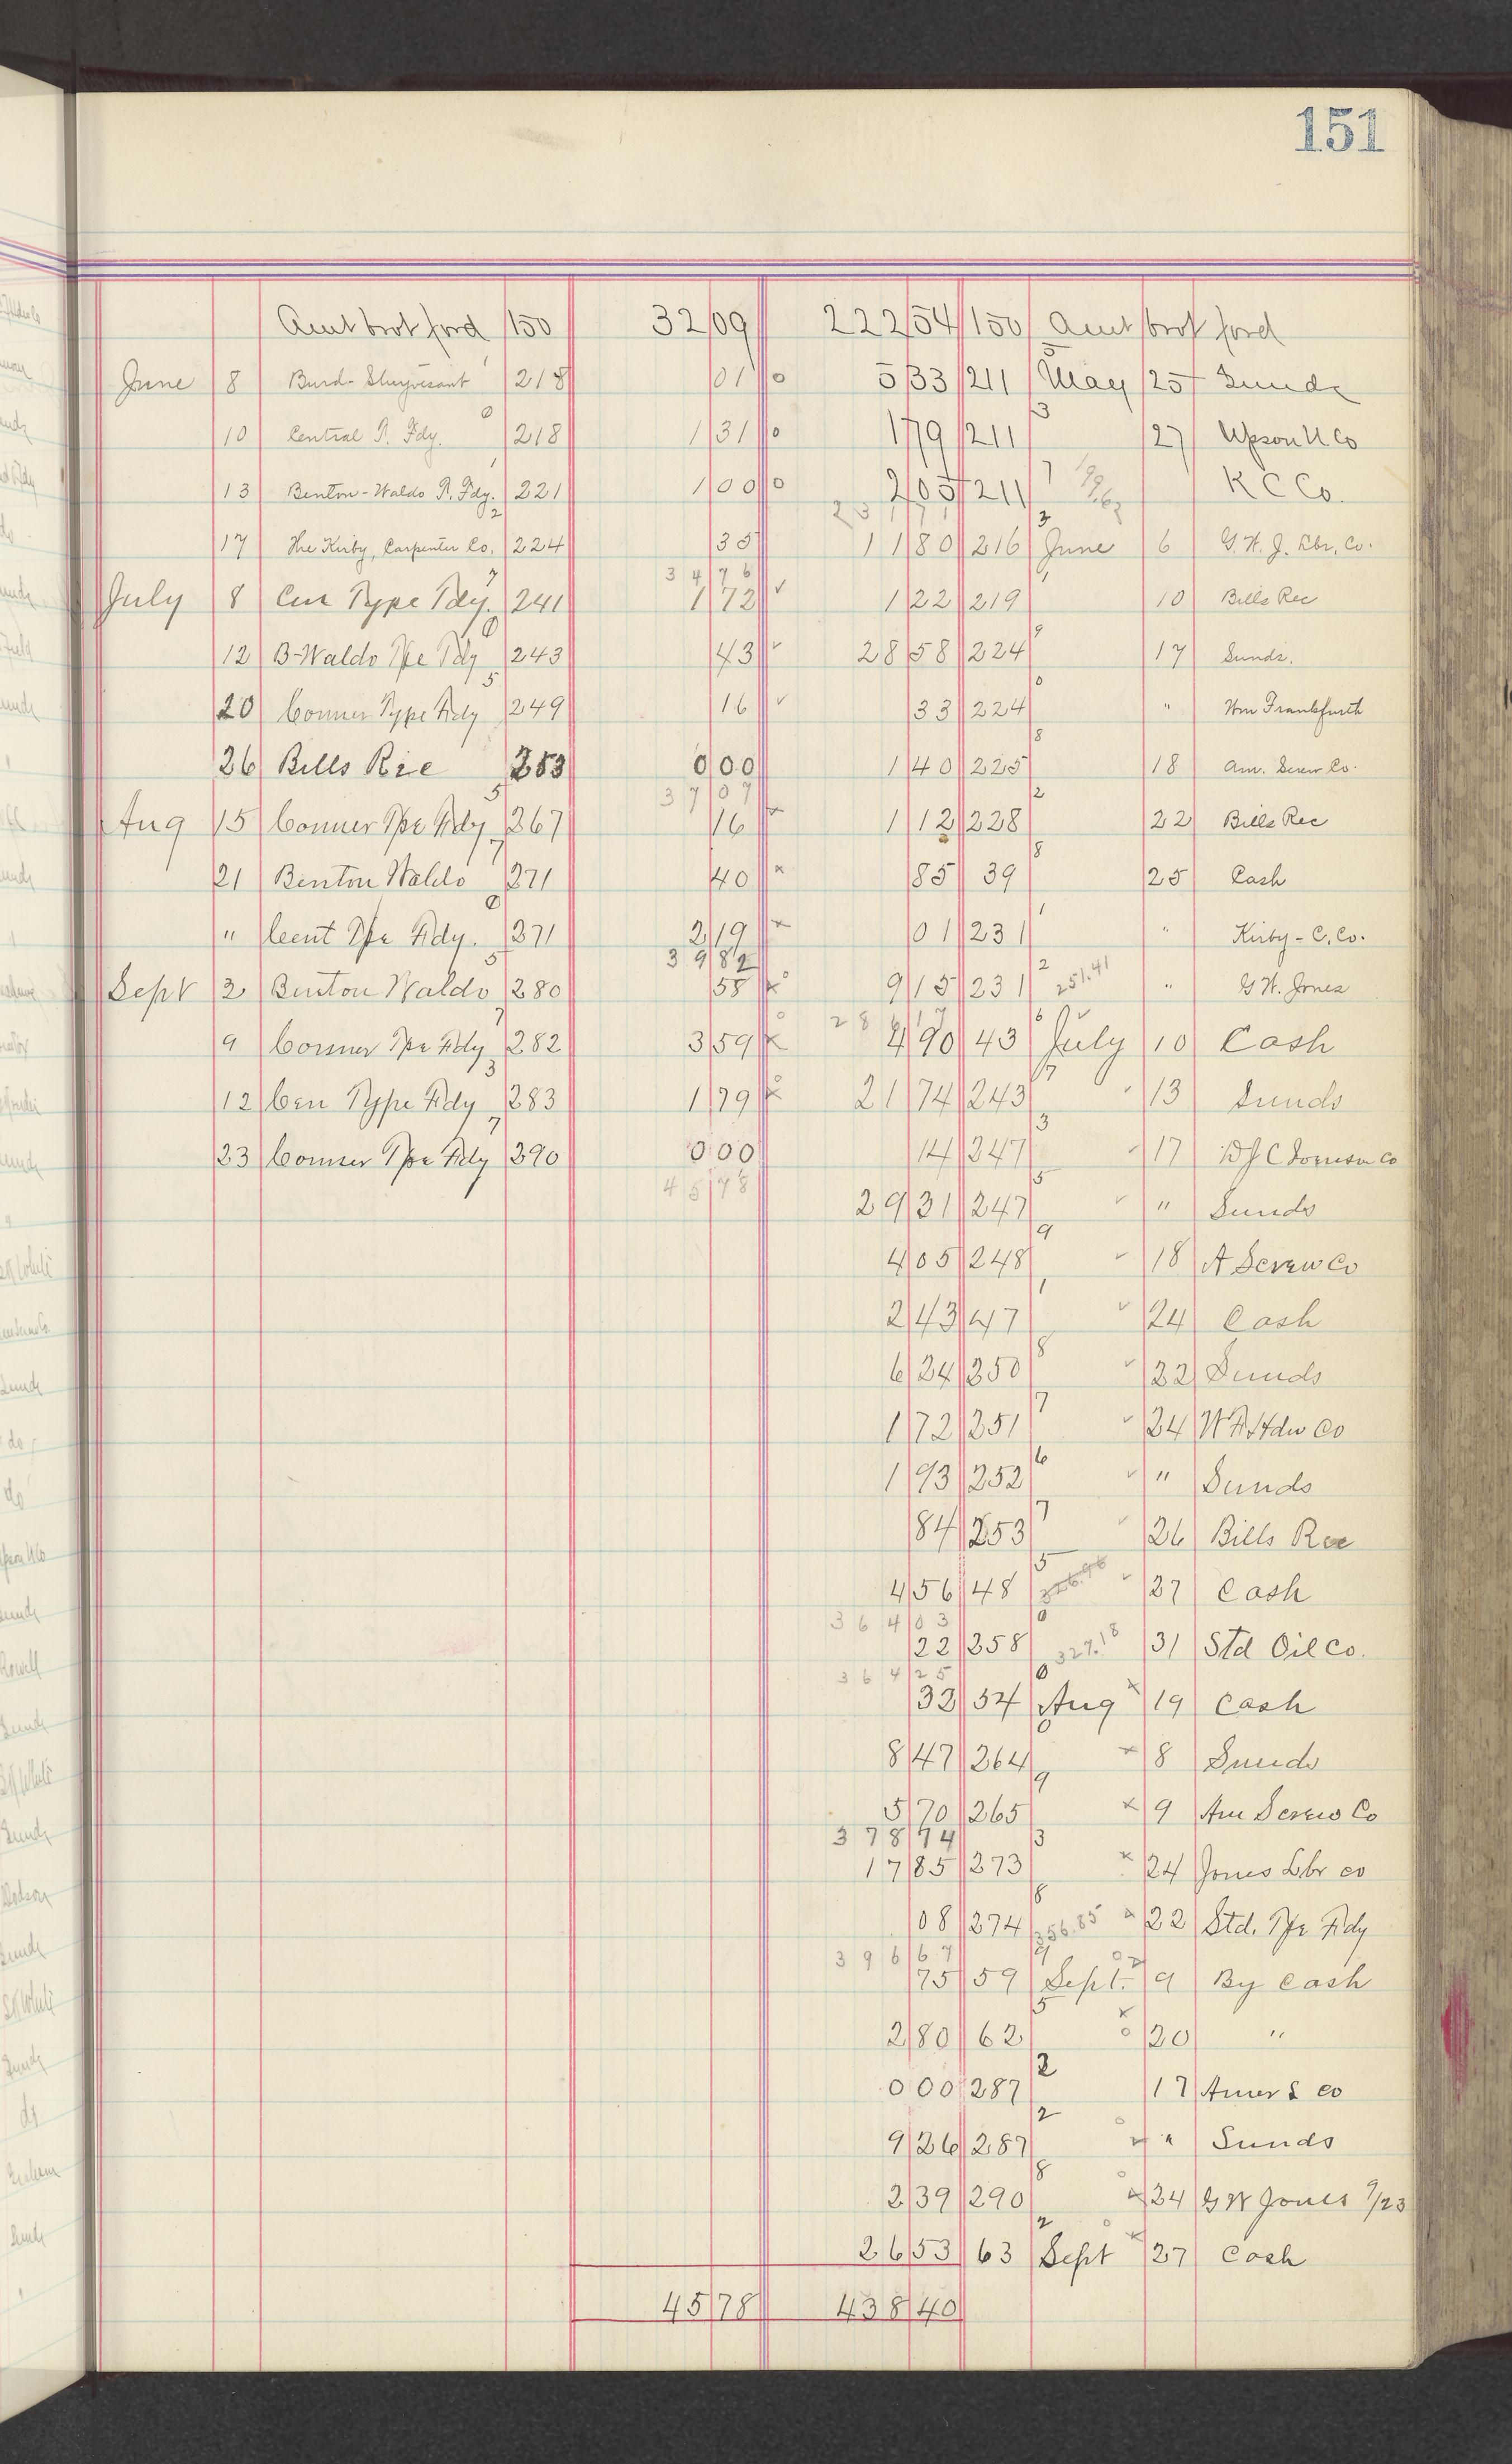 151
Amt brot ford 150 32 09 222 54 150 Amt brot ford
June 8 Burd- 218 01 o 5 33 211 May 25 Sunds
10 Central T. Fdy. 218 1 31 o 1 79 211 27 Upson N Co
13 Benton-Waldo T. Fdy. 221 1 00 o 2 05 211 K C Co.
231 71
17 The Kirby, Carpenter Co. 224 35 11 80 216 June 6 G. W. J. Lbr. Co.
34 76
July 8 Cen Type Fdy. 241 1 72 ✓ 1 22 219 10 Bills Rec
12 B-Waldo Tpe Fdy 243 43 ✓ 28 58 224 17 Sunds.
20 Conner Type Fdy 249 16 ✓ 33 224 " Wm Frankfurth
26 Bills Rec 253 0 00 1 40 225 18 Am. Screw Co.
37 07
Aug 15 Conner Tpe Fdy 267 16 x 1 12 228 22 Bills Rec
21 Benton Waldo 271 40 x 85 39 25 Cash
" Cent Tpe Fdy. 271 2 19 x 01 231 " Kirby-C. Co.
39 82
Sept 2 Benton Waldo 280 58 x 9 15 231 251.41 " G W. Jones
286 17
9 Conner Tpe Fdy 282 3 59 x 4 90 43 July 10 Cash
12 Cen Type Fdy 283 1 79 x 21 74 243 ✓ 13 Sunds
23 Conner Tpe Fdy 290 0 00 14 247 ✓ 17 W J C Co
45 78
29 31 247 ✓ " Sunds
4 05 248 ✓ 18 A Screw Co
2 43 47 ✓ 24 Cash
6 24 250 ✓ 22 Sunds
1 72 251 ✓ 24 Hdw Co
1 93 252 ✓ " Sunds
84 253 ✓ 26 Bills Rec
4 56 48 326.96 ✓ 27 Cash
364 03
22 258 327.18 31 Std Oil Co.
364 25
32 54 Aug x 19 Cash
8 47 264 x 8 Sunds
5 70 265 x 9 Am Screw Co
378 74
17 85 273 x 24 Jones Lbr co
08 274 356.85 x 22 Std. Tpe Fdy
396 67
75 59 Sept. 9 By Cash
2 80 62 x 20 "
0 00 287 17 Amer S Co
9 26 287 " Sunds
2 39 290 x 24 G W Jones 9/23
26 53 63 Sept x 27 Cash
45 78 438 40